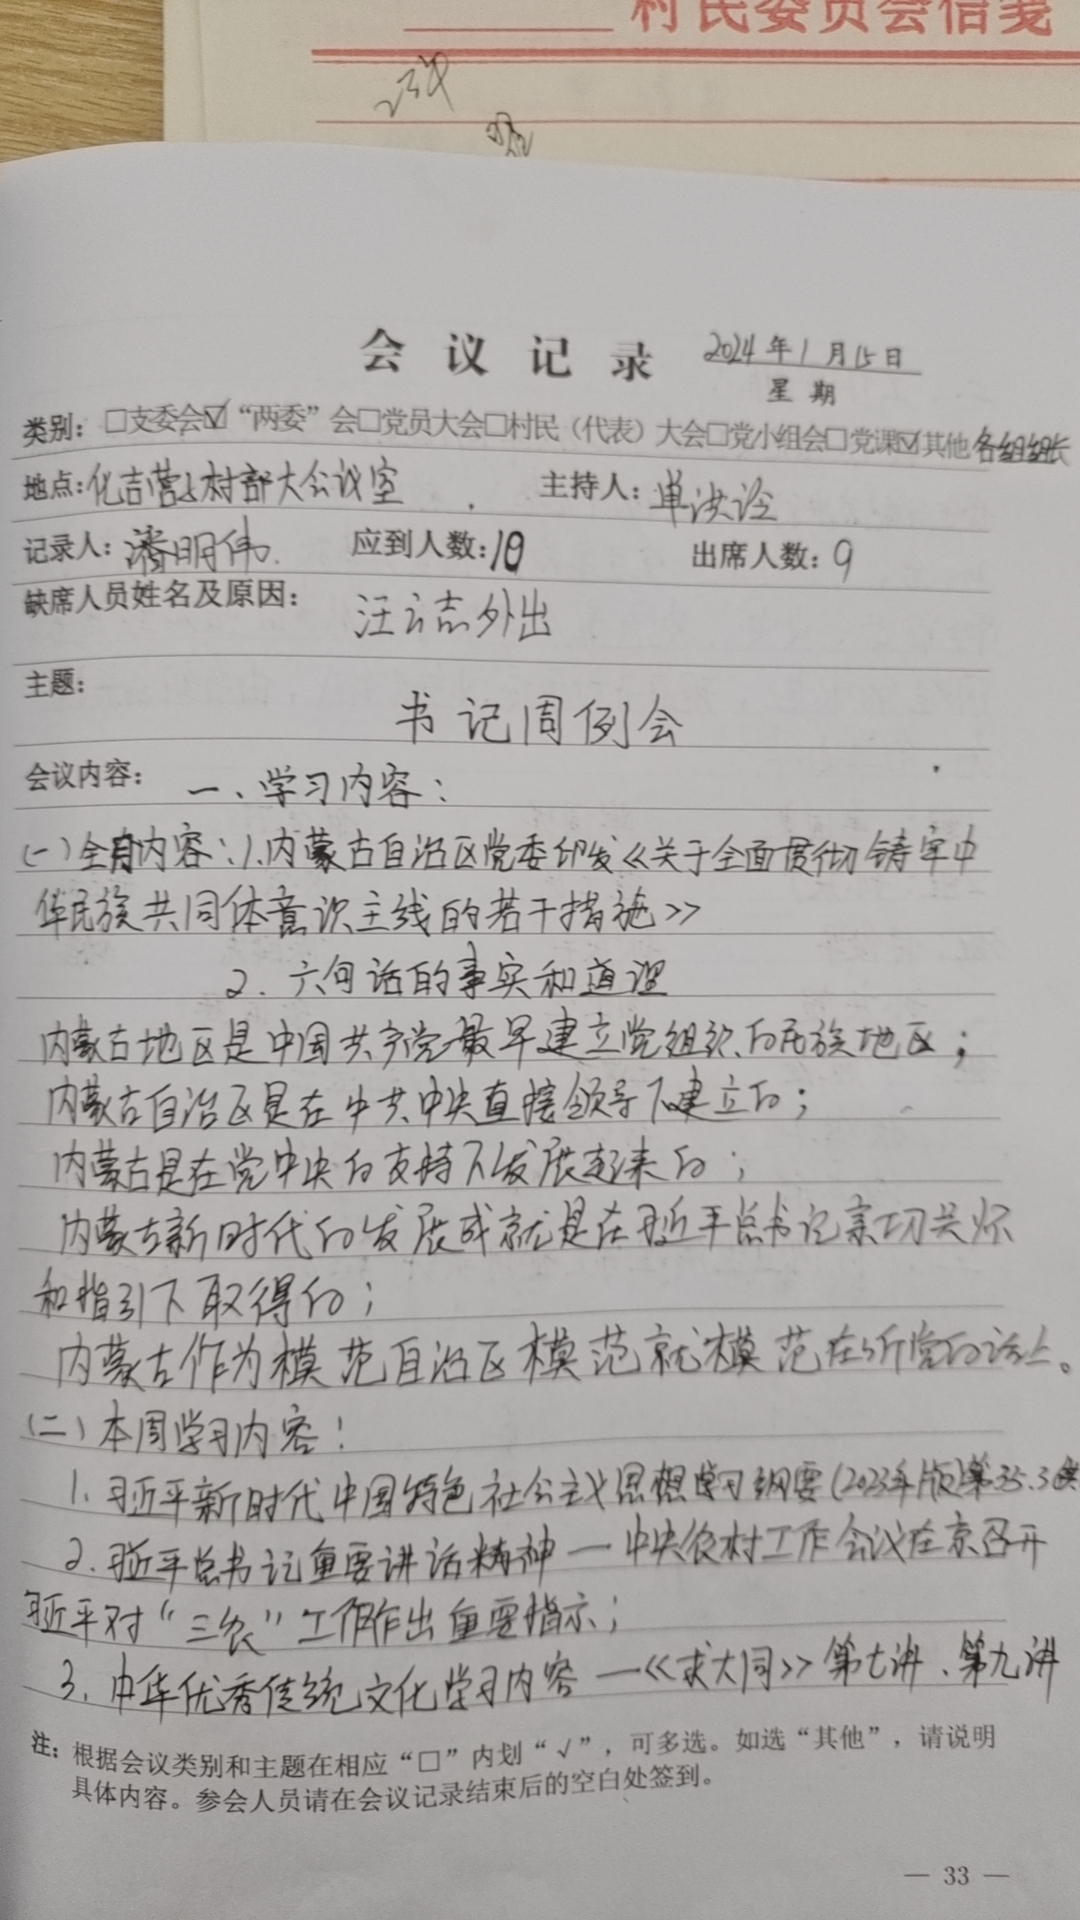 村民委员会信笺
会议记录 2024年1月15日
星期
类别：□支委会☑“两委”会□党员大会□村民（代表）大会□党小组会□党课☑其他 各组组长
地点：化吉营子村部大会议室 主持人：单洪
记录人：潘明伟 应到人数：10 出席人数：9
缺席人员姓名及原因：汪云志外出
主题：
书记周例会
会议内容：一、学习内容：
(一)全月内容：1.内蒙古自治区党委印发《关于全面贯彻铸牢中
华民族共同体意识主线的若干措施》
2.六句话的事实和道理
内蒙古地区是中国共产党最早建立党组织的民族地区；
内蒙古自治区是在中共中央直接领导下建立的；
内蒙古是在党中央的支持下发展起来的；
内蒙古新时代的发展成就是在习近平总书记亲切关怀
和指引下取得的；
内蒙古作为模范自治区模范就模范在听党的话上。
(二)本周学习内容：
1.习近平新时代中国特色社会主义思想学习纲要(2023年版)第35.36
2.习近平总书记重要讲话精神一中央农村工作会议在京召开
习近平对“三农”工作作出重要指示；
3.中华优秀传统文化学习内容一《求大同》第七讲、第九讲
注：根据会议类别和主题在相应“□”内划“√”，可多选。如选“其他”，请说明
具体内容。参会人员请在会议记录结束后的空白处签到。
— 33 —